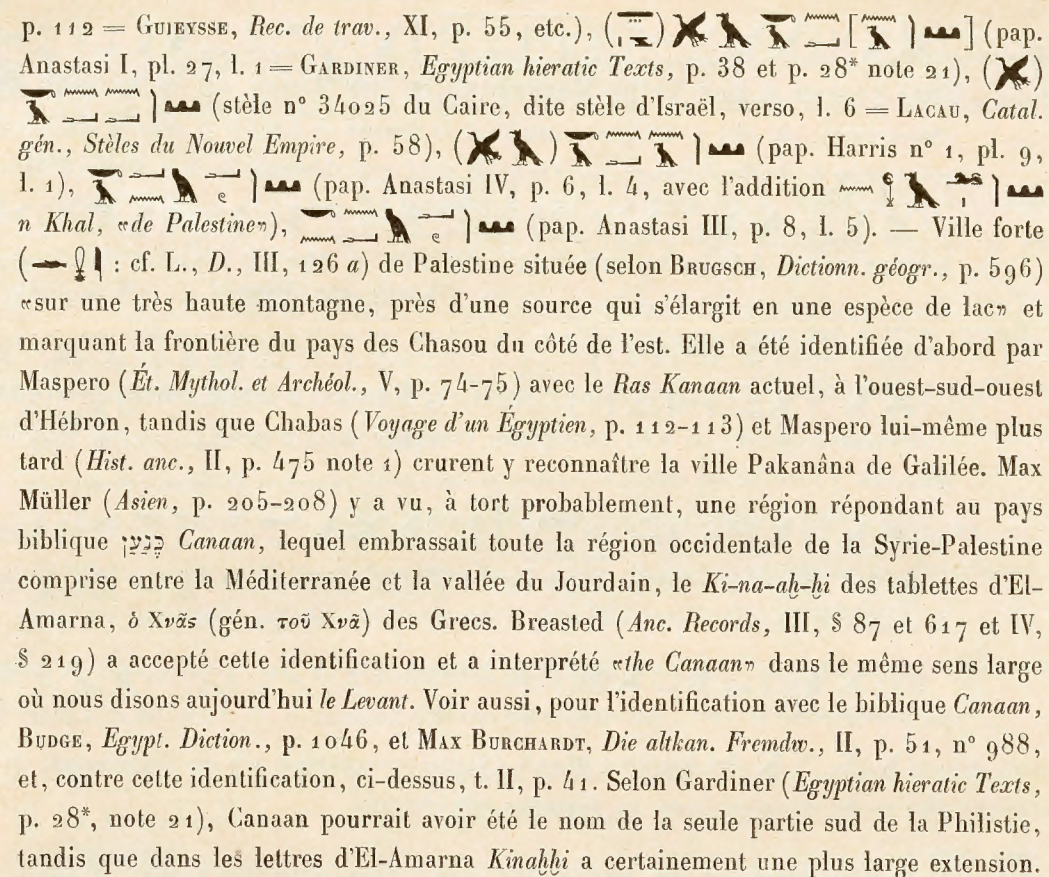 p. 112 = GUIEYSSE, Rec. de trav., XI, p. 55, etc.), ( ) [ ] (pap.
Anastasi I, pl. 27, l. 1 = GARDINER, Egyptian hieratic Texts, p. 38 et p. 28* note 21), ( )
(stèle n° 34025 du Caire, dite stèle d'Israël, verso, l. 6 = LACAU, Catal.
gén., Stèles du Nouvel Empire, p. 58), ( ) (pap. Harris n° 1, pl. 9,
l. 1), (pap. Anastasi IV, p. 6, l. 4, avec l'addition
n Khal, «de Palestine»), (pap. Anastasi III, p. 8, l. 5). — Ville forte
( : cf. L., D., III, 126 a) de Palestine située (selon BRUGSCH, Dictionn. géogr., p. 596)
«sur une très haute montagne, près d'une source qui s'élargit en une espèce de lac» et
marquant la frontière du pays des Chasou du côté de l'est. Elle a été identifiée d'abord par
Maspero (Ét. Mythol. et Archéol., V, p. 74-75) avec le Ras Kanaan actuel, à l'ouest-sud-ouest
d'Hébron, tandis que Chabas (Voyage d'un Égyptien, p. 112-113) et Maspero lui-même plus
tard (Hist. anc., II, p. 475 note 1) crurent y reconnaître la ville Pakanâna de Galilée. Max
Müller (Asien, p. 205-208) y a vu, à tort probablement, une région répondant au pays
biblique כְּנַעַן Canaan, lequel embrassait toute la région occidentale de la Syrie-Palestine
comprise entre la Méditerranée et la vallée du Jourdain, le Ki-na-aḫ-ḫi des tablettes d'El-
Amarna, ὁ Χνᾶς (gén. τοῦ Χνᾶ) des Grecs. Breasted (Anc. Records, III, § 87 et 617 et IV,
§ 219) a accepté cette identification et a interprété «the Canaan» dans le même sens large
où nous disons aujourd'hui le Levant. Voir aussi, pour l'identification avec le biblique Canaan,
BUDGE, Egypt. Diction., p. 1046, et MAX BURCHARDT, Die altkan. Fremdw., II, p. 51, n° 988,
et, contre cette identification, ci-dessus, t. II, p. 41. Selon Gardiner (Egyptian hieratic Texts,
p. 28*, note 21), Canaan pourrait avoir été le nom de la seule partie sud de la Philistie,
tandis que dans les lettres d'El-Amarna Kinaḫḫi a certainement une plus large extension.